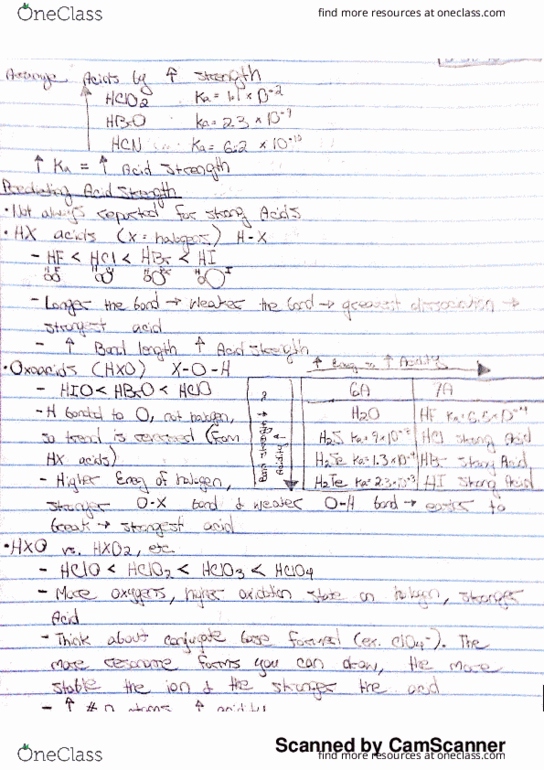 OneClass
find more resources at oneclass.com
Arrange Acids by ↑ strength
HClO2 Ka = 1.1 x 10^-2
HBrO Ka = 2.3 x 10^-9
HCN Ka = 6.2 x 10^-10
↑ Ka = ↑ Acid Strength
Predicting Acid Strength
• Not always reported for strong Acids
• HX acids (X = halogens) H-X
- HF < HCl < HBr < HI
- Longer the bond → weaker the bond → greatest dissociation →
strongest acid
- ↑ Bond length ↑ Acid strength
• Oxoacids (HXO) X-O-H
- HIO < HBrO < HClO
- H bonded to O, not halogen,
so trend is reversed (from
HX acids)
- Higher Eneg of halogen,
stronger O-X bond & weaker O-H bond → easier to
break → strongest acid
↑ Eneg ↑ Acidity
Bond Strength ↓ Acidity ↑
6A 7A
H2O HF Ka = 6.8 x 10^-4
H2S Ka = 9 x 10^-8 HCl strong Acid
H2Te Ka = 1.3 x 10^-4 HBr Strong Acid
H2Te Ka = 2.3 x 10^-3 HI Strong Acid
• HXO vs. HXO2, etc.
- HClO < HClO2 < HClO3 < HClO4
- More oxygens, higher oxidation state on halogen, stronger
Acid
- Think about conjugate base formed (ex. ClO4-). The
more resonance forms you can draw, the more
stable the ion & the stronger the acid
- ↑ # O atoms ↑ acidity
Scanned by CamScanner
OneClass
find more resources at oneclass.com